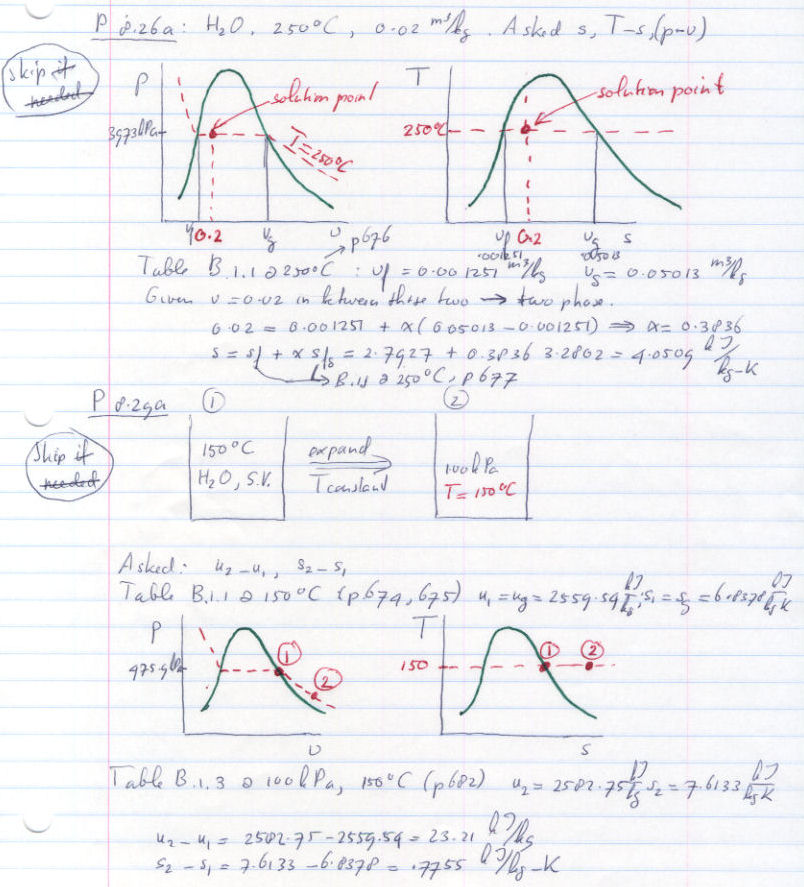 P 8.26a: H2O, 250°C, 0.02 m³/kg. Asked s, T-s, (p-v)
skip if
needed
P
solution point
3973kPa
T=250°C
vf 0.2 vg v
T
solution point
250°C
vf 0.2 vg s
.001251 .05013
p676
Table B.1.1 @ 250°C : vf = 0.001251 m³/kg vg = 0.05013 m³/kg
Given v = 0.02 in between these two → two phase.
0.02 = 0.001251 + x(0.05013 - 0.001251) ⇒ x = 0.3836
s = sf + x sfg = 2.7927 + 0.3836 3.2802 = 4.0509 kJ/kg-K
B.1.1 @ 250°C, p677
P 8.29a ① ②
Skip if
needed
150°C
H2O, S.V.
expand
T constant
100kPa
T = 150°C
Asked: u2 - u1, s2 - s1
Table B.1.1 @ 150°C (p674, 675) u1 = ug = 2559.54 kJ/kg; s1 = sg = 6.8378 kJ/kg K
P
475.9kPa
①
②
v
T
150
① ②
s
Table B.1.3 @ 100kPa, 150°C (p682) u2 = 2582.75 kJ/kg s2 = 7.6133 kJ/kg K
u2 - u1 = 2582.75 - 2559.54 = 23.21 kJ/kg
s2 - s1 = 7.6133 - 6.8378 = .7755 kJ/kg-K